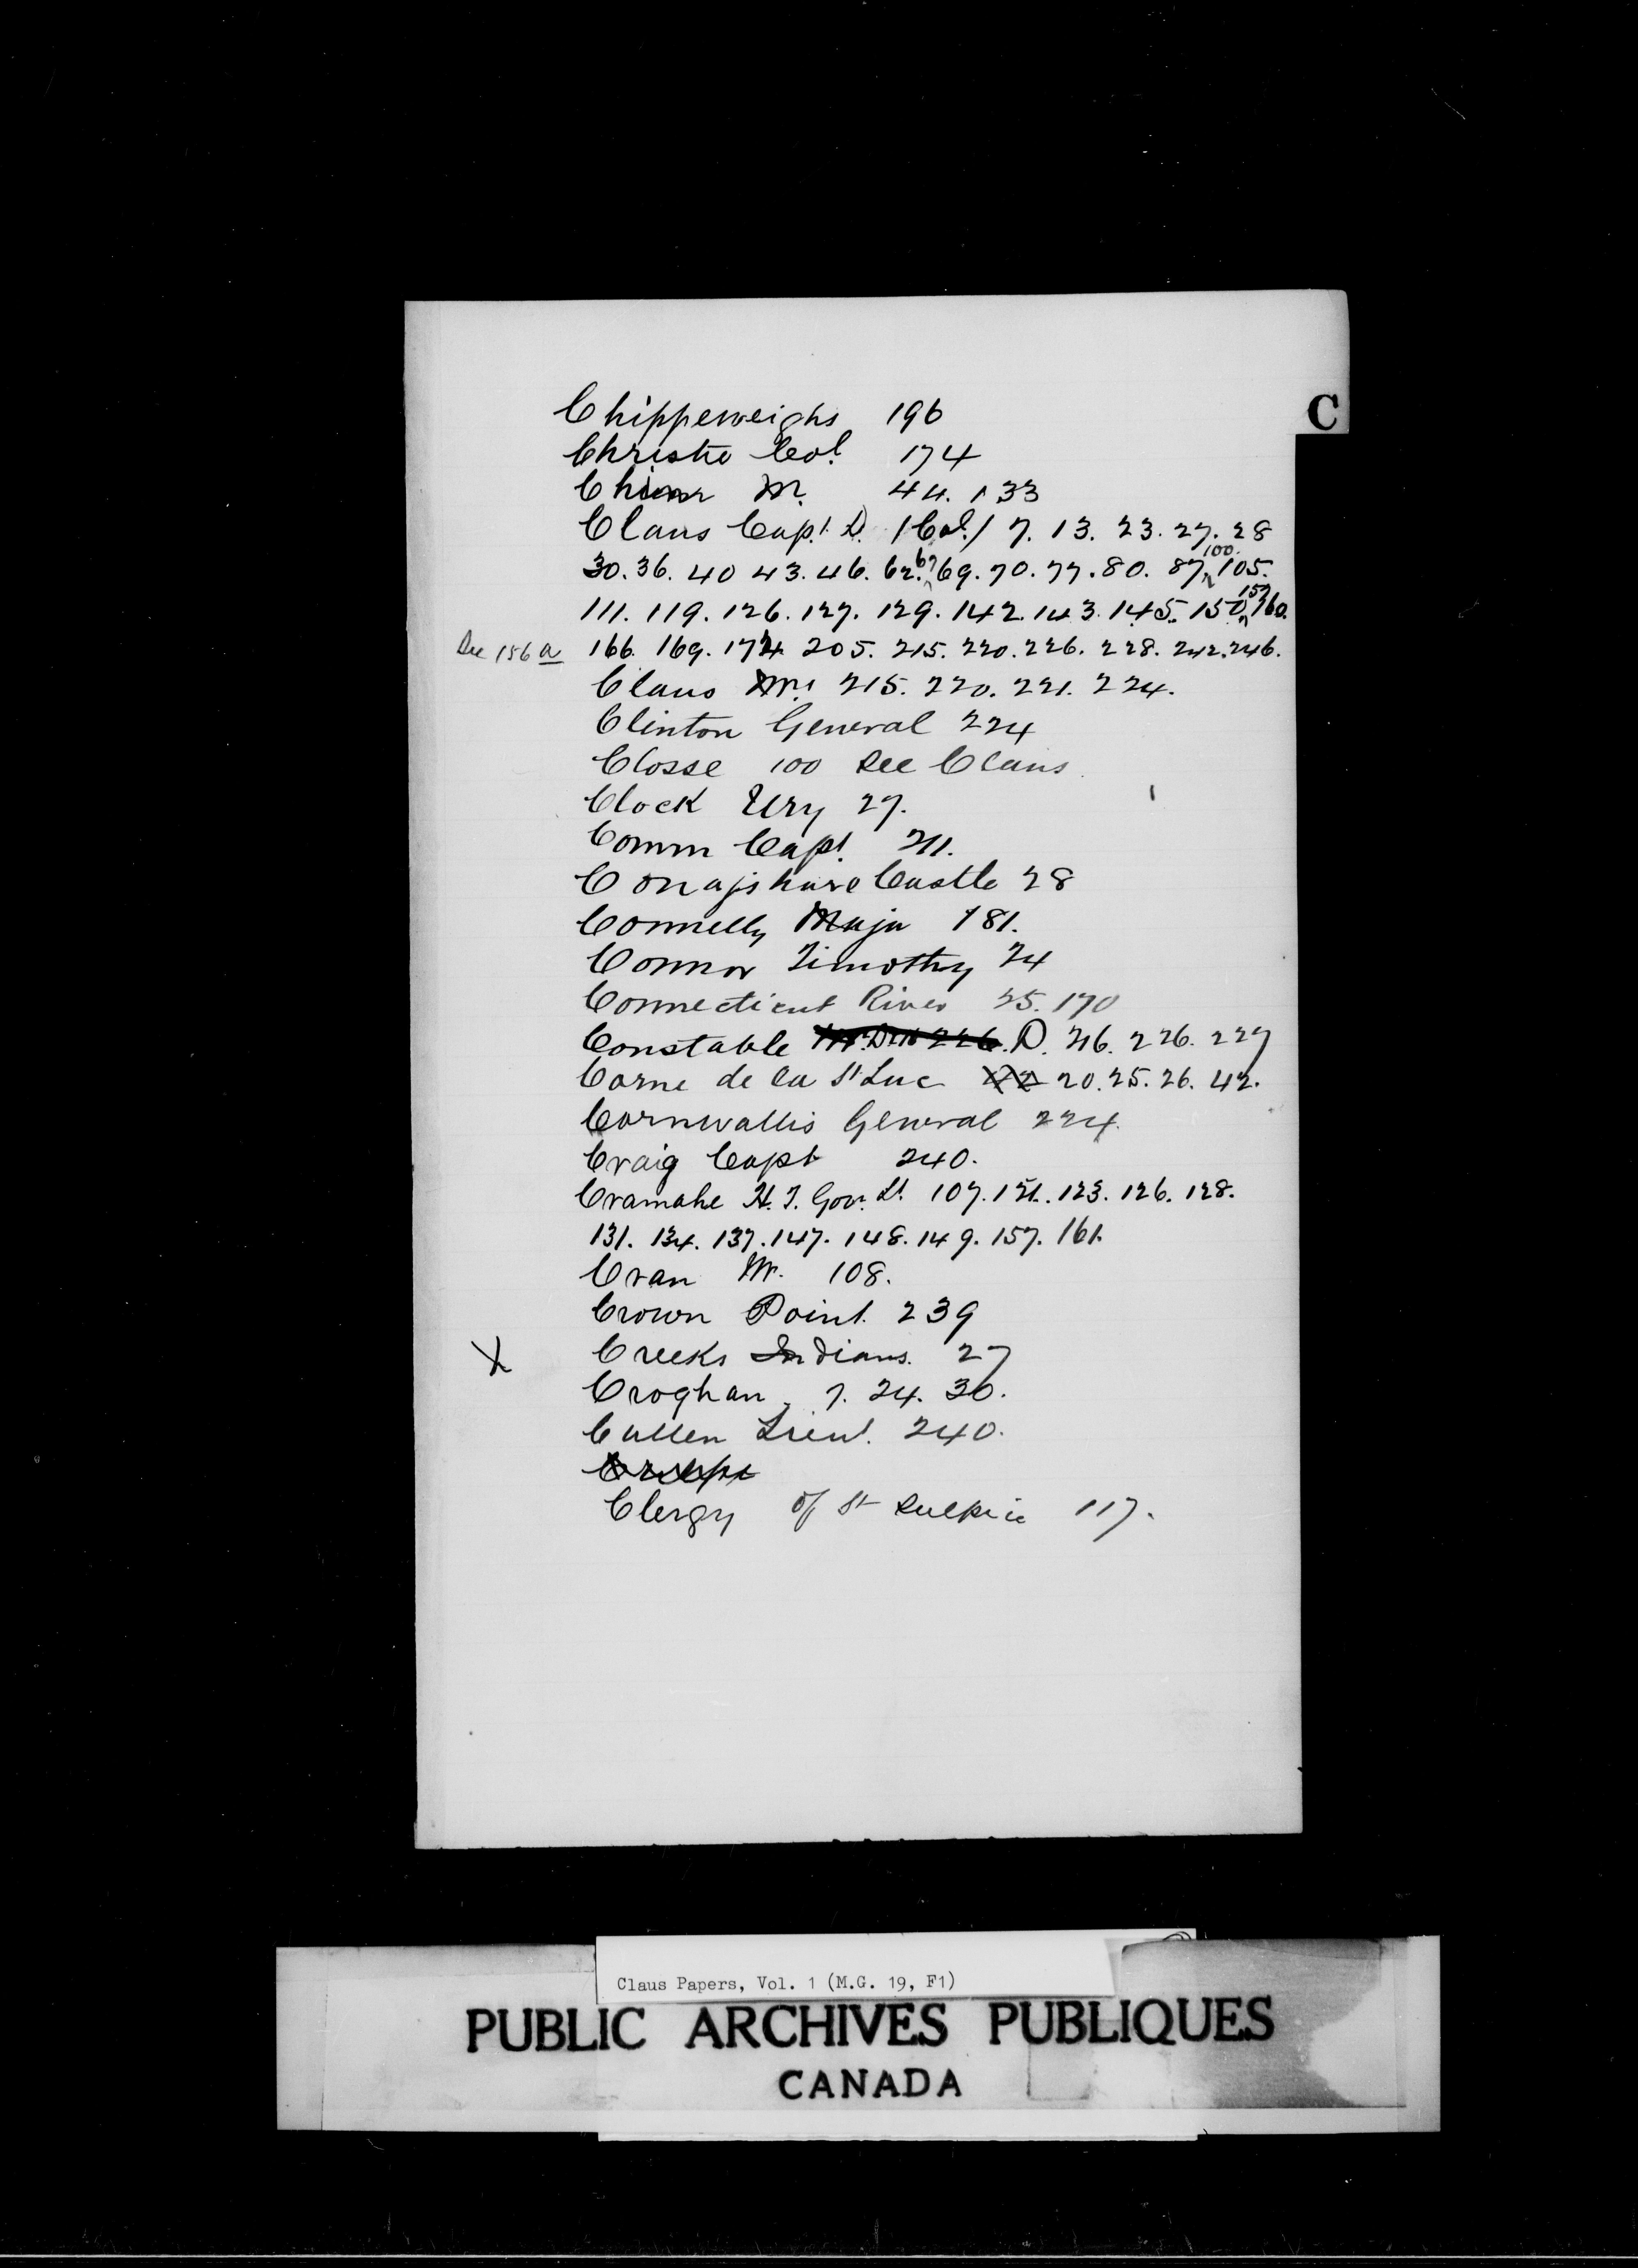 C
Chippeweighs 196
Christie Col. 174
M. 44. 133
Claus Capt. D. (Col.) 7. 13. 23. 27. 28
30. 36. 40 43. 46. 62. 67 69. 70. 77. 80. 87. 100. 105.
111. 119. 126. 127. 129. 142. 143. 145. 150. 157 160.
See 156 a 166. 169. 174 205. 215. 220. 226. 228. 242. 246.
Claus Mrs 215. 220. 221. 224.
Clinton General 224
Closse 100 See Claus
Clock Ury 27.
Comm Capt. 211.
Conajohare Castle 28
Connelly Major 181.
Connor Timothy 24
Connecticut River 25. 170
Constable D. 216. 226. 227
Corne de la St Luc 20. 25. 26. 42.
Cornwallis General 224.
Craig Capt 240.
Cramahe H. T. Gov. Lt. 107. 121. 123. 126. 128.
131. 134. 137. 147. 148. 149. 157. 161.
Cran Mr. 108.
Crown Point. 239
X Creeks Indians. 27
Croghan 7. 24. 30.
Cullen Lieut. 240.
Clergy of St Sulpice 117.
Claus Papers, Vol. 1 (M.G. 19, F1)
PUBLIC ARCHIVES PUBLIQUES
CANADA